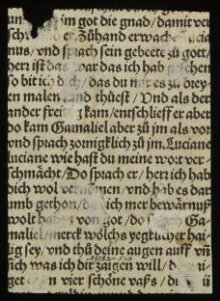 im got die gnad/ damit ver
Zůhand erwach
nus/ vnd sprach sein gebeete zů gott/
herr ist das war das ich hab
so bit ich dich/ das du
en malen thuest/ Vnd als der
ander frei kam/ entschlieff er aber
do kam Gamaliel aber zů jm als vor
vnd sprach zorniglich zů jm. Luciane
luciane wie hast du meine wort ver
schmächt/ Do sprach er/ herr ich hab
dich wol vernomen/ vnd hab es dar
umb gethon/ das ich mer bewärnuß
wolt haben von got/ do Ga
maliel/ merck wölchs yegklicher hai
lig sey/ vnd thů deine augen auff vn
ich was ich dir zaigen will/ do
get er im vier schöne vaß